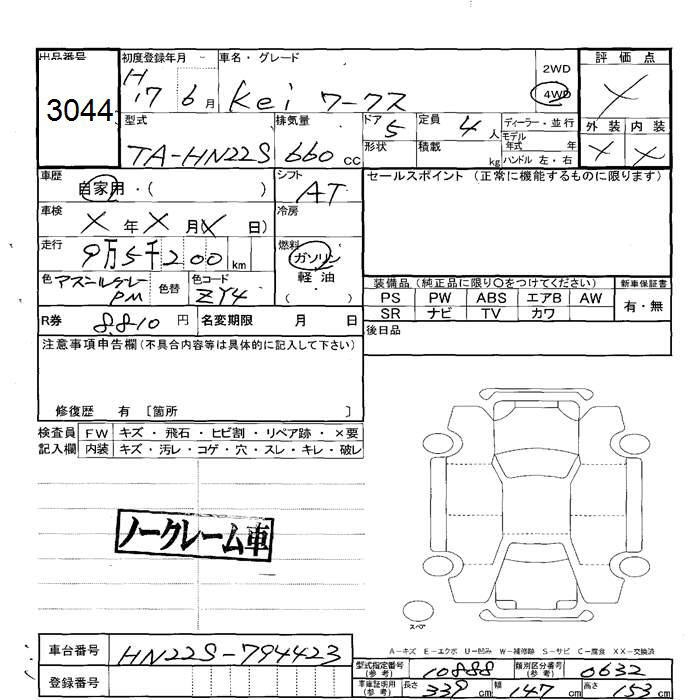 出品番号 初度登録年月 車名・グレード 評価点
3044 H17 6月 Kei ワークス 2WD 4WD ×
型式 排気量 ドア 5 定員 4人 ディーラー・並行 外装 内装
TA-HN22S 660 cc 形状 積載 kg モデル年式 年 ハンドル 左・右 × ×
車歴 自家用・( ) シフト AT セールスポイント (正常に機能するものに限ります)
車検 × 年 × 月(× 日) 冷房
走行 9万5千200 km 燃料 ガソリン
軽油
( )
色 PM 色替 色コード ZY4 装備品 (純正品に限り○をつけてください) 新車保証書
PS PW ABS エアB AW 有・無
R券 8810 円 名変期限 月 日 SR ナビ TV カワ
後日品
注意事項申告欄 (不具合内容等は具体的に記入して下さい)
修復歴 有 〔箇所 〕
検査員 FW キズ・飛石・ヒビ割・リペア跡・×要
記入欄 内装 キズ・汚レ・コゲ・穴・スレ・キレ・破レ
ノークレーム車
スペア
A-キズ E-エクボ U-凹み W-補修跡 S-サビ C-腐食 XX-交換済
車台番号 HN22S-794423 型式指定番号(参考) 10888 類別区分番号(参考) 0632
登録番号 車庫証明用(参考) 長さ 339 cm 幅 147 cm 高さ 153 cm